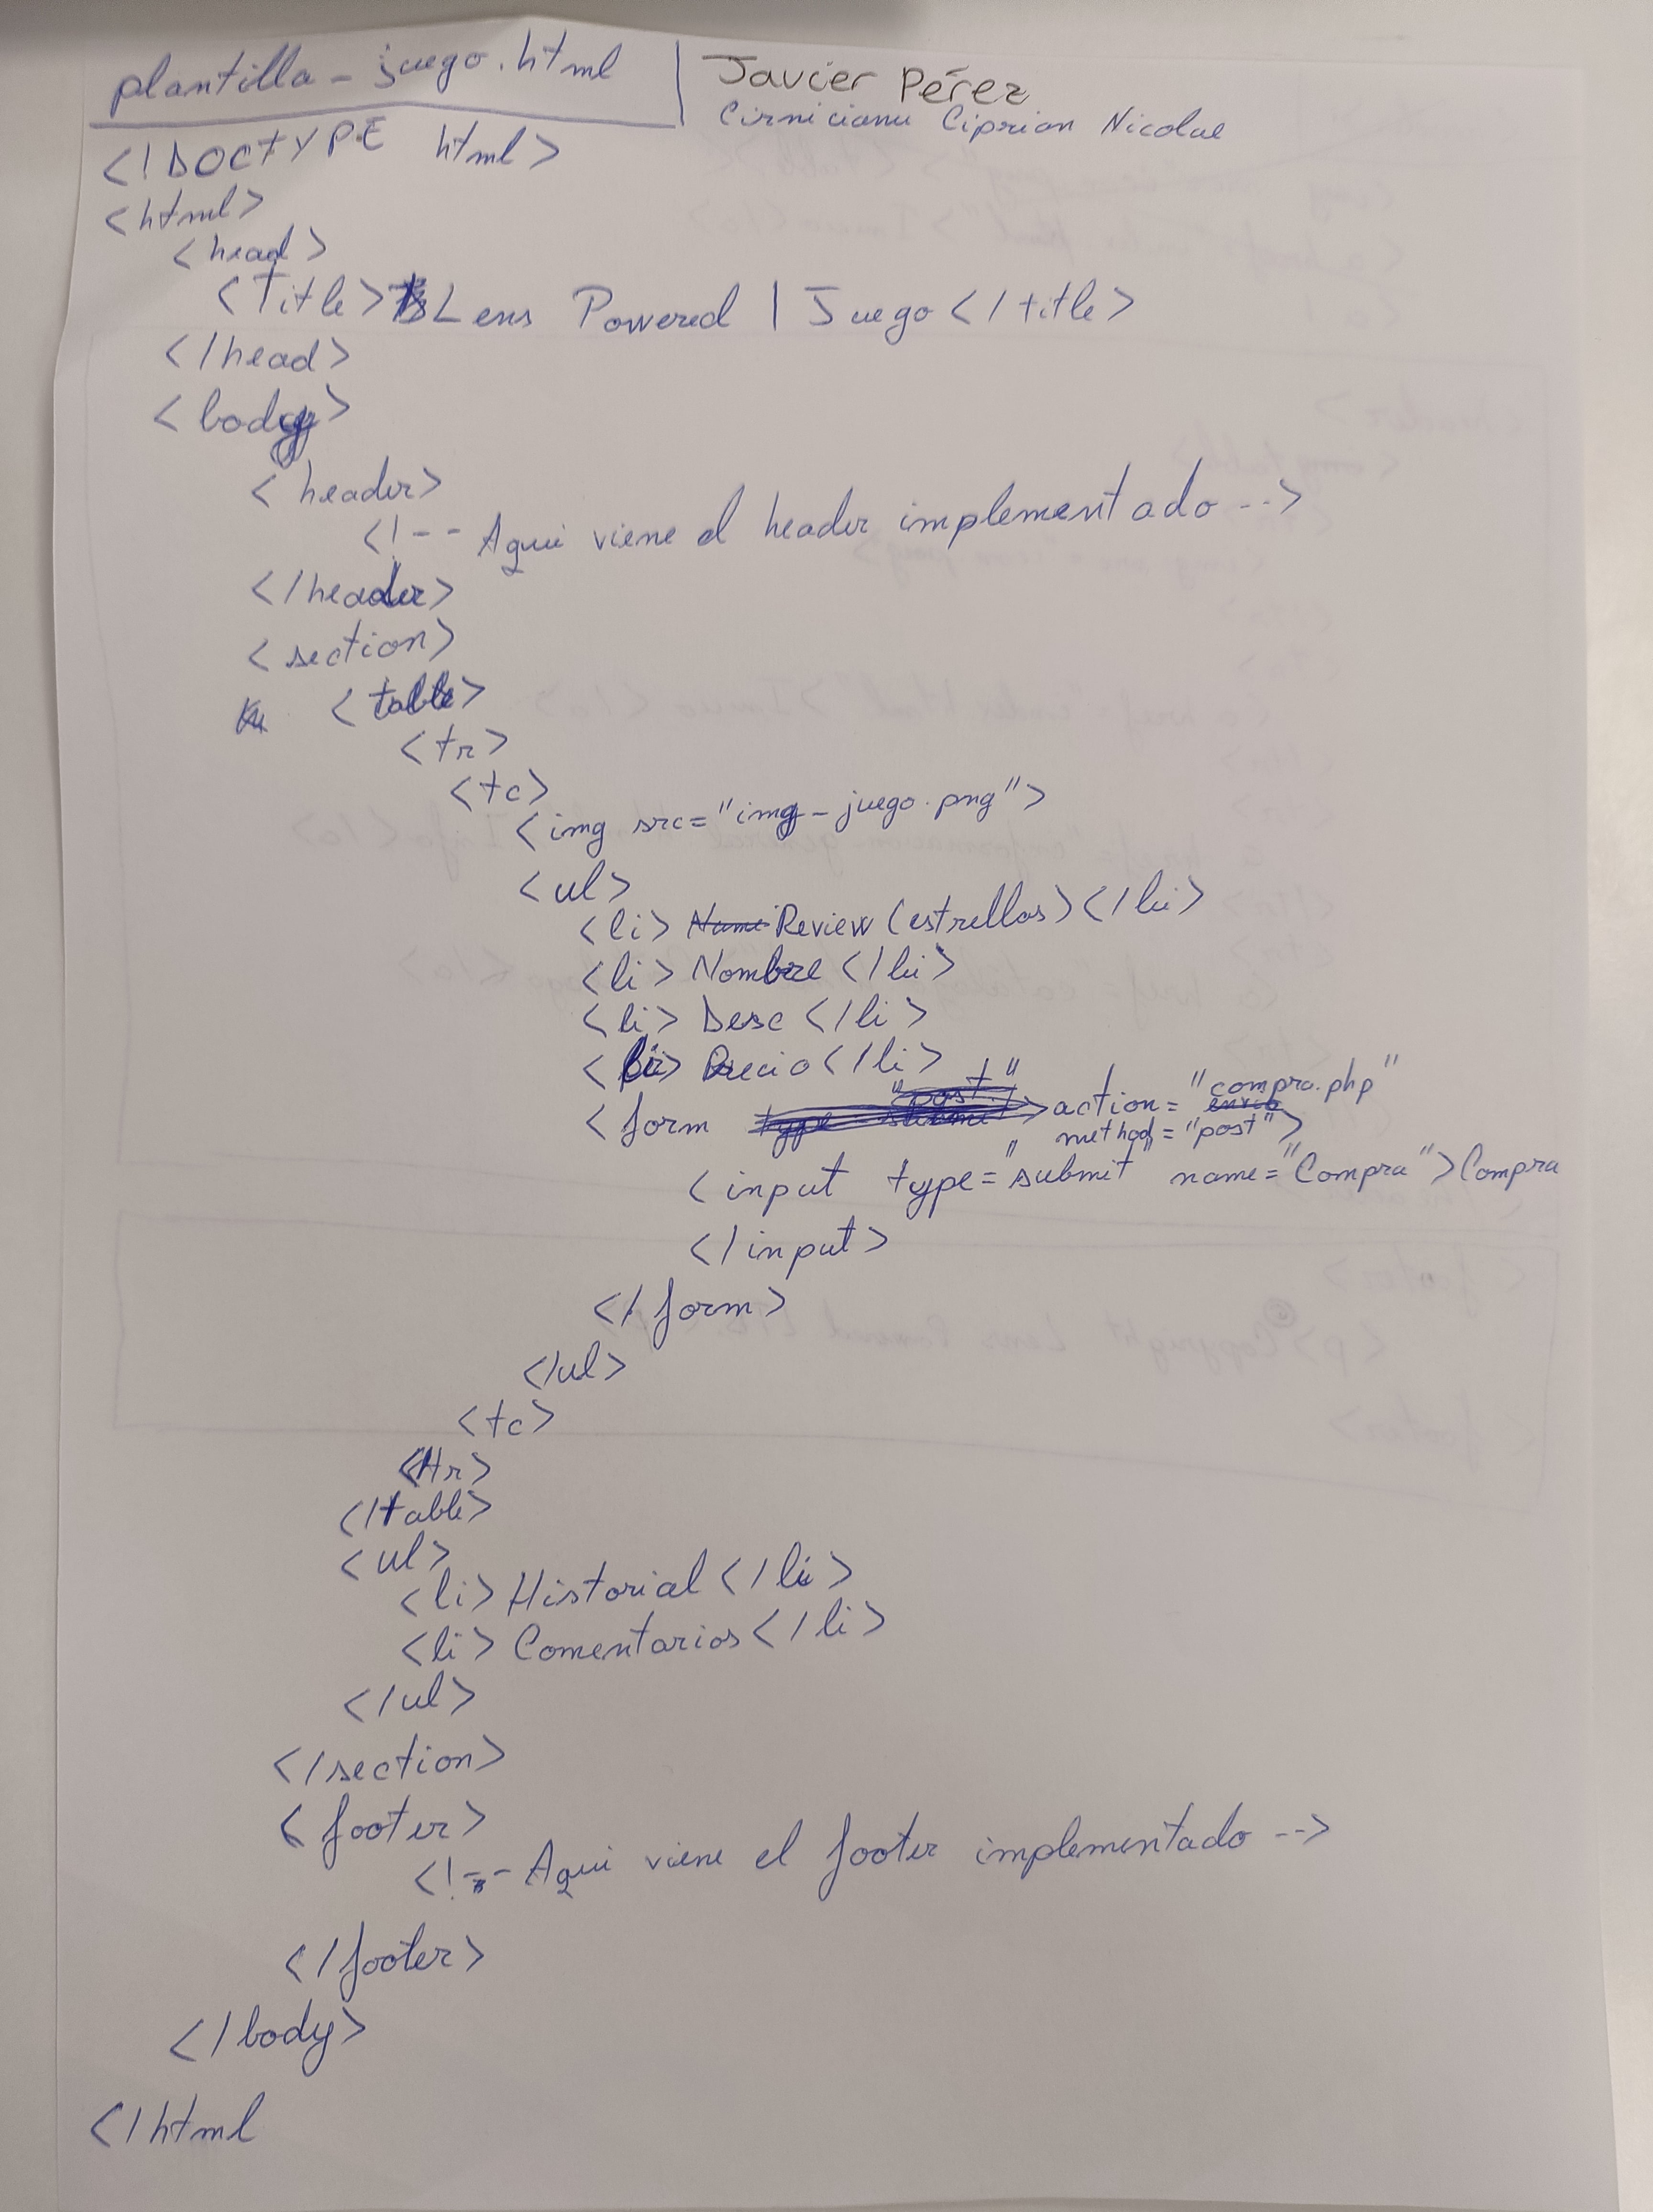 plantilla-juego.html | Javier Pérez
Cirnicianu Ciprian Nicolae
<!DOCTYPE html>
<html>
<head>
<Title> Lens Powered | Juego</title>
</head>
<body>
<header>
<!-- Aqui viene el header implementado -->
</header>
<section>
<table>
<tr>
<tc>
<img src="img-juego.png">
<ul>
<li> Review (estrellas)</li>
<li> Nombre </li>
<li> Desc </li>
<li> Precio </li>
<form action="compra.php"
method="post">
<input type="submit" name="Compra">Compra
</input>
</form>
</ul>
<tc>
</tr>
</table>
<ul>
<li> Historial </li>
<li> Comentarios </li>
</ul>
</section>
<footer>
<!-- Aqui viene el footer implementado -->
</footer>
</body>
</html